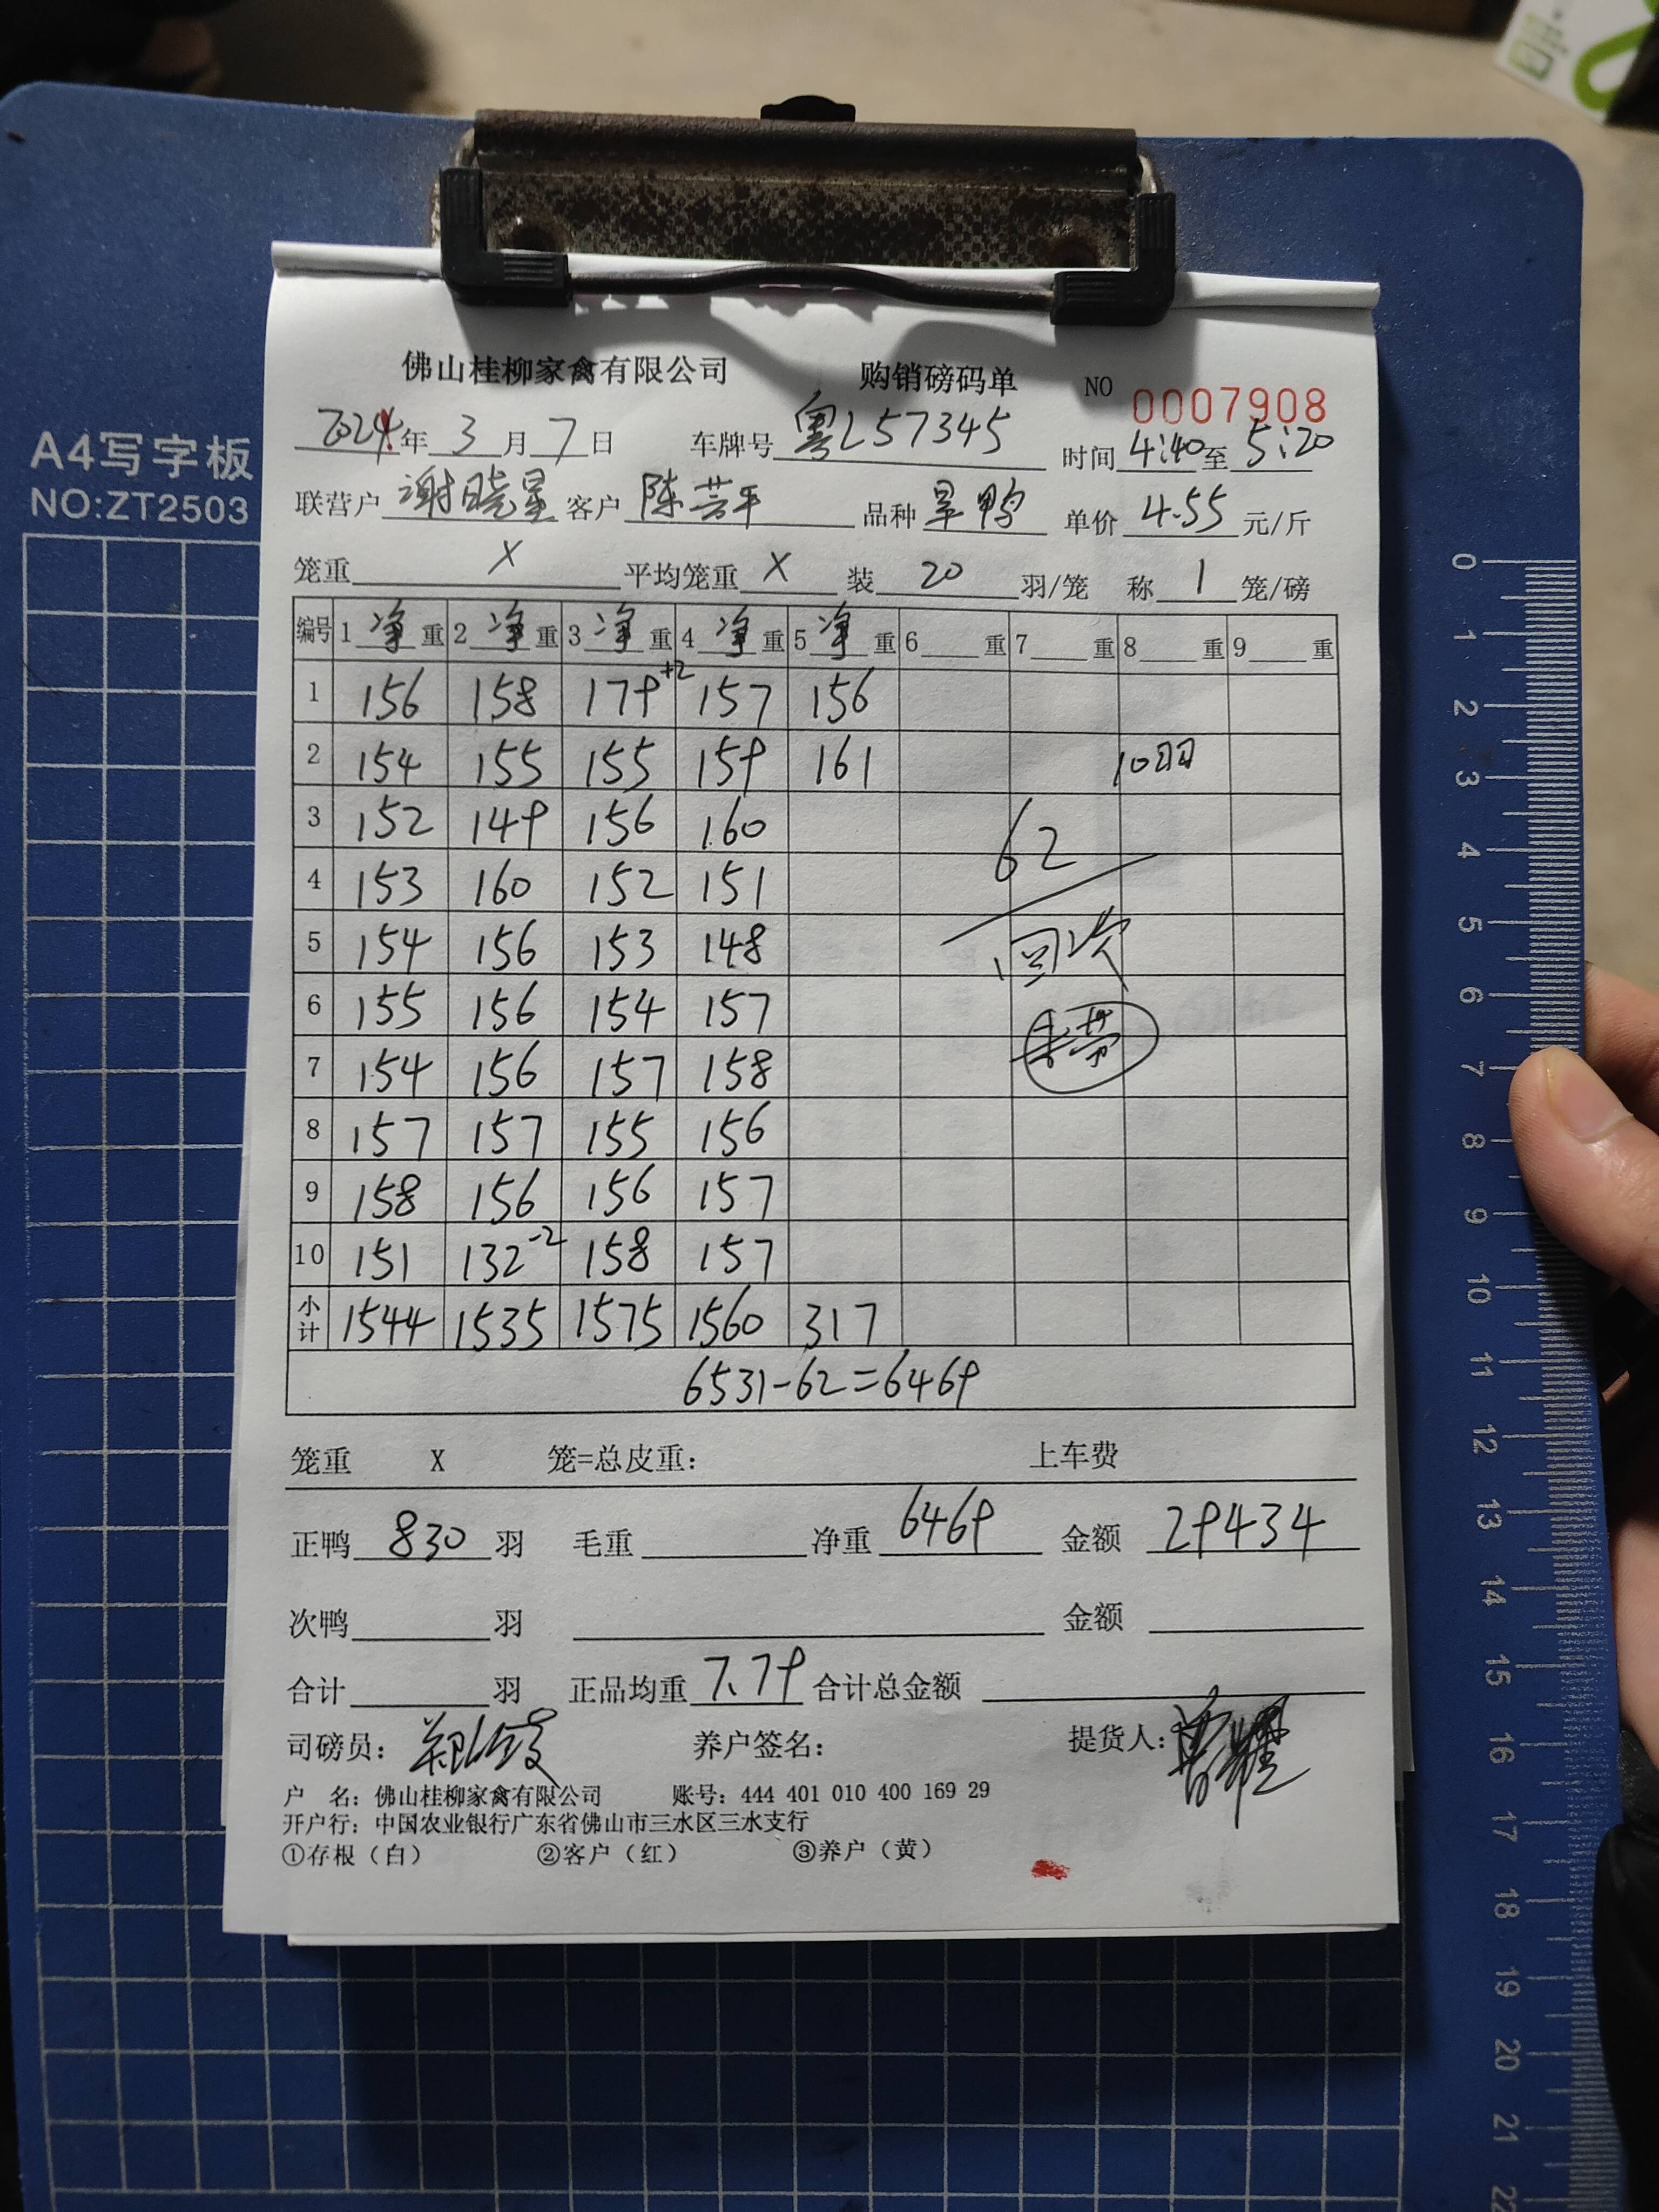 A4写字板
NO:ZT2503
佛山桂柳家禽有限公司 购销磅码单 NO 0007908
2024年3月7日 车牌号 粤L57345 时间 4:40 至 5:20
联营户 谢晓星 客户 陈芸平 品种 旱鸭 单价 4.55 元/斤
笼重 X 平均笼重 X 装 20 羽/笼 称 1 笼/磅
编号 1 净 重 2 净 重 3 净 重 4 净 重 5 净 重 6 重 7 重 8 重 9 重
1 156 158 179 +2 157 156
2 154 155 155 159 161 10羽
3 152 149 156 160 62
4 153 160 152 151
5 154 156 153 148 回次
6 155 156 154 157
7 154 156 157 158
8 157 157 155 156
9 158 156 156 157
10 151 132 -2 158 157
小计 1544 1535 1575 1560 317
6531-62=6469
笼重 X 笼=总皮重: 上车费
正鸭 830 羽 毛重 净重 6469 金额 29434
次鸭 羽 金额
合计 羽 正品均重 7.79 合计总金额
司磅员: 养户签名: 提货人:
户 名: 佛山桂柳家禽有限公司 账号: 444 401 010 400 169 29
开户行: 中国农业银行广东省佛山市三水区三水支行
①存根（白） ②客户（红） ③养户（黄）
0
1
2
3
4
5
6
7
8
9
10
11
12
13
14
15
16
17
18
19
20
21